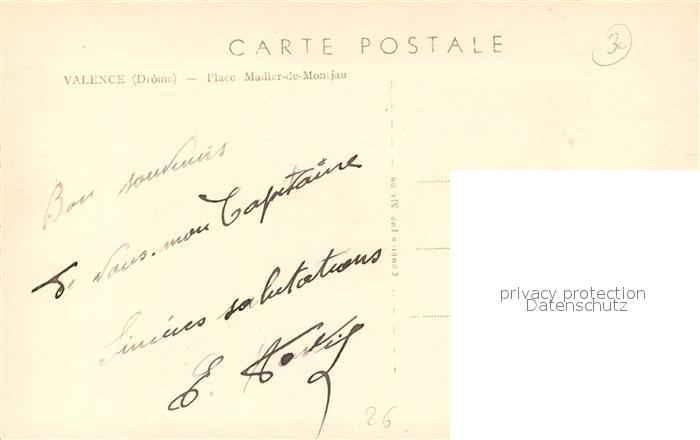 CARTE POSTALE
30
VALENCE (Drôme) — Place Madier-de-Montjau
Bon souvenirs
de vous. mon Capitaine
Sincères salutations
E.
COMBIER IMP. MACON
privacy protection
Datenschutz
26